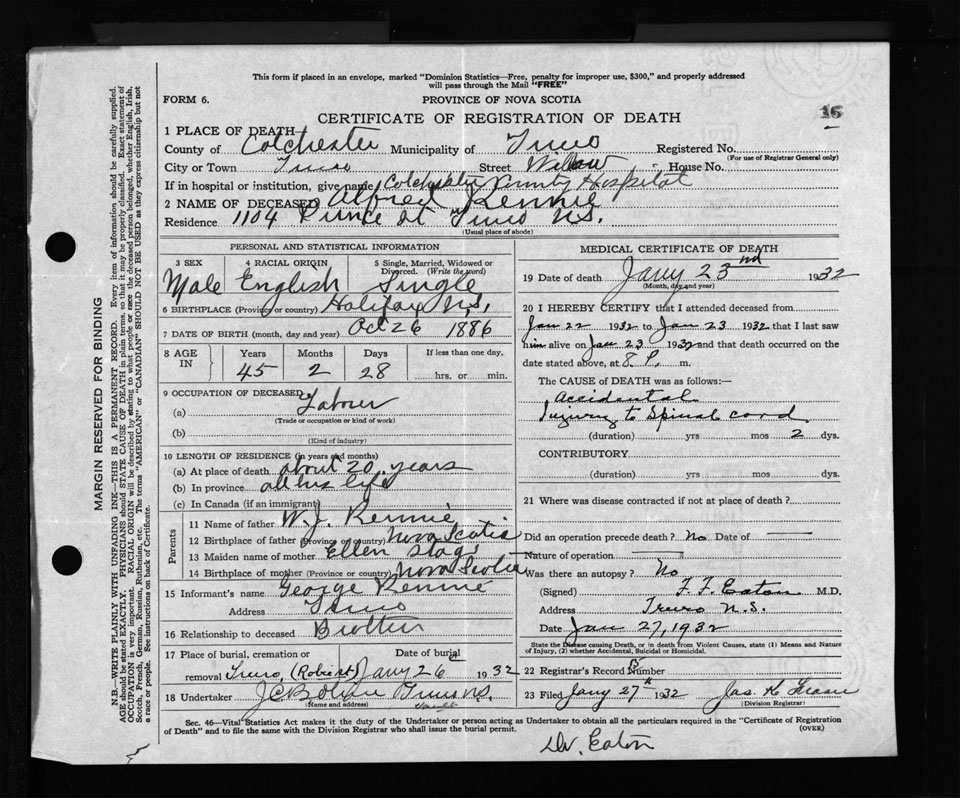 This form if placed in an envelope, marked "Dominion Statistics—Free, penalty for improper use, $300," and properly addressed
will pass through the Mail "FREE"
FORM 6.
PROVINCE OF NOVA SCOTIA
16
CERTIFICATE OF REGISTRATION OF DEATH
1 PLACE OF DEATH
County of Colchester Municipality of Truro Registered No.
(For use of Registrar General only)
City or Town Truro Street Willow House No.
If in hospital or institution, give name Colchester County Hospital
2 NAME OF DECEASED Alfred Rennie
Residence 1104 Prince St Truro N.S.
(Usual place of abode)
PERSONAL AND STATISTICAL INFORMATION
3 SEX 4 RACIAL ORIGIN 5 Single, Married, Widowed or Divorced. (Write the word)
Male English Single
6 BIRTHPLACE (Province or country) Halifax N.S.
7 DATE OF BIRTH (month, day and year) Oct 26 1886
8 AGE IN Years Months Days If less than one day,
45 2 28 hrs. or min.
9 OCCUPATION OF DECEASED
(a) Laborer
(Trade or occupation or kind of work)
(b)
(Kind of industry)
10 LENGTH OF RESIDENCE (in years and months)
(a) At place of death about 20 years
(b) In province all his life
(c) In Canada (if an immigrant)
Parents
11 Name of father W. J. Rennie
12 Birthplace of father (Province or country) Nova Scotia
13 Maiden name of mother Ellen
14 Birthplace of mother (Province or country) Nova Scotia
15 Informant's name George Rennie
Address Truro
16 Relationship to deceased Brother
17 Place of burial, cremation or removal Date of burial
Truro, (Robie St) Jany 26 1932
18 Undertaker Truro N.S.
(Name and address)
MEDICAL CERTIFICATE OF DEATH
19 Date of death Jany 23nd 1932
(Month, day and year)
20 I HEREBY CERTIFY that I attended deceased from
Jan 22 1932 to Jan 23 1932 that I last saw
him alive on Jan 23 1932 and that death occurred on the
date stated above, at 8 P. m.
The CAUSE OF DEATH was as follows:—
Accidental
Injury to Spinal cord
(duration) yrs mos 2 dys.
CONTRIBUTORY
(duration) yrs mos dys.
21 Where was disease contracted if not at place of death?
Did an operation precede death? No Date of —
Nature of operation —
Was there an autopsy? No
(Signed) F. F. Eaton M.D.
Address Truro N.S.
Date Jan 27, 1932
State the Disease causing Death, or in death from Violent Causes, state (1) Means and Nature of
Injury, (2) whether Accidental, Suicidal or Homicidal.
22 Registrar's Record Number
23 Filed Jany 27th 1932 Jas K Fraser
(Division Registrar)
Sec. 46—Vital Statistics Act makes it the duty of the Undertaker or person acting as Undertaker to obtain all the particulars required in the "Certificate of Registration
of Death" and to file the same with the Division Registrar who shall issue the burial permit.
(OVER)
Dr. Eaton
MARGIN RESERVED FOR BINDING
WRITE PLAINLY WITH UNFADING INK—THIS IS A PERMANENT RECORD. Every item of information should be carefully supplied.
AGE should be stated EXACTLY. PHYSICIANS should STATE CAUSE OF DEATH in plain terms, so that it may be properly classified. Exact statement of
OCCUPATION is very important. RACIAL ORIGIN will be described by stating to what people or race the deceased person belonged, whether English, Irish,
Scotch, French, German, Russian, Ruthenian, etc. The terms "AMERICAN" or "CANADIAN" SHOULD NOT BE USED as they express citizenship but not
a race or people. See instructions on back of Certificate.